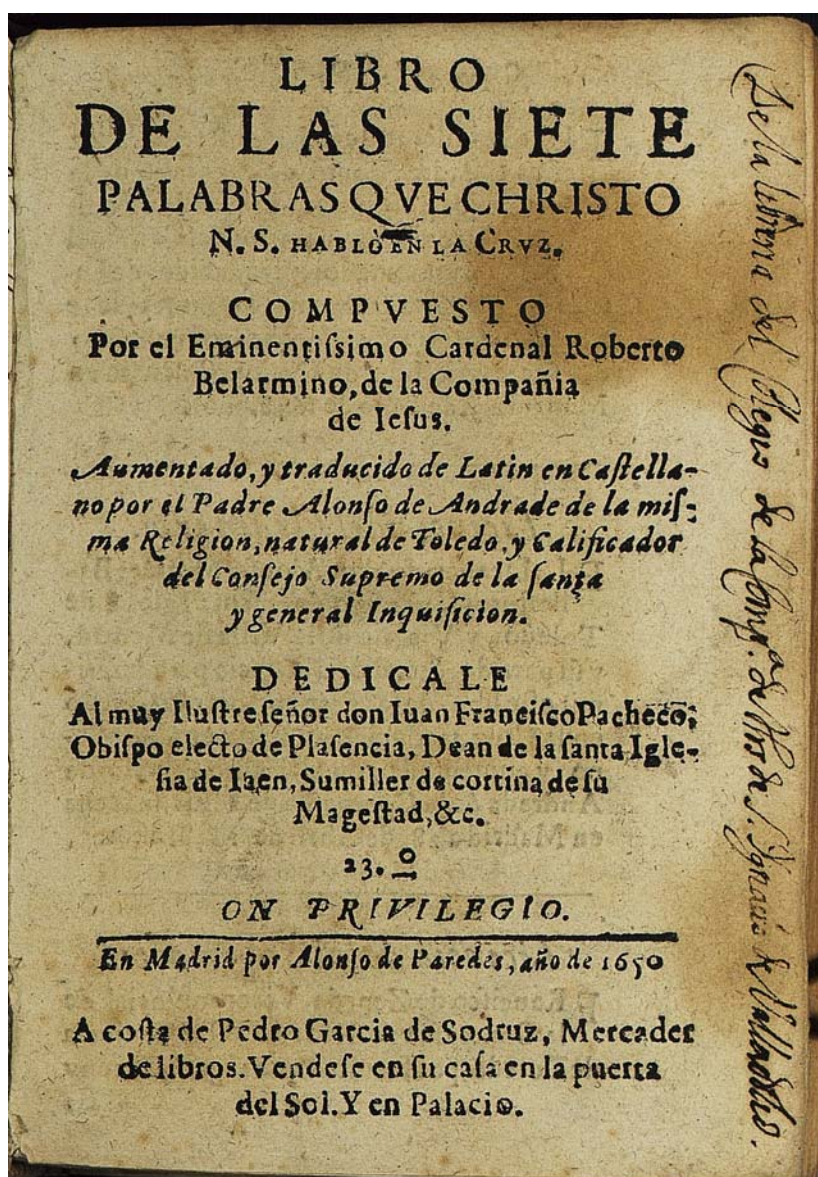 LIBRO
DE LAS SIETE
PALABRAS QVE CHRISTO
N. S. HABLÒ EN LA CRVZ.
COMPVESTO
Por el Eminentiſsimo Cardenal Roberto
Belarmino, de la Compañia
de Ieſus.
Aumentado, y traducido de Latin en Caſtella-
no por el Padre Alonſo de Andrade de la miſ-
ma Religion, natural de Toledo, y Calificador
del Conſejo Supremo de la ſanta
y general Inquiſicion.
DEDICALE
Al muy Iluſtre ſeñor don Iuan Franciſco Pacheco,
Obiſpo electo de Plaſencia, Dean de la ſanta Igle-
ſia de Iaen, Sumiller de cortina de ſu
Mageſtad, &c.
23. o
ON PRIVILEGIO.
En Madrid por Alonſo de Paredes, año de 1650
A coſta de Pedro Garcia de Sodruz, Mercader
de libros. Vendeſe en ſu caſa en la puerta
del Sol. Y en Palacio.
De la libreria del Colegio de la Compª. de de S. Ignacio de Valladolid.